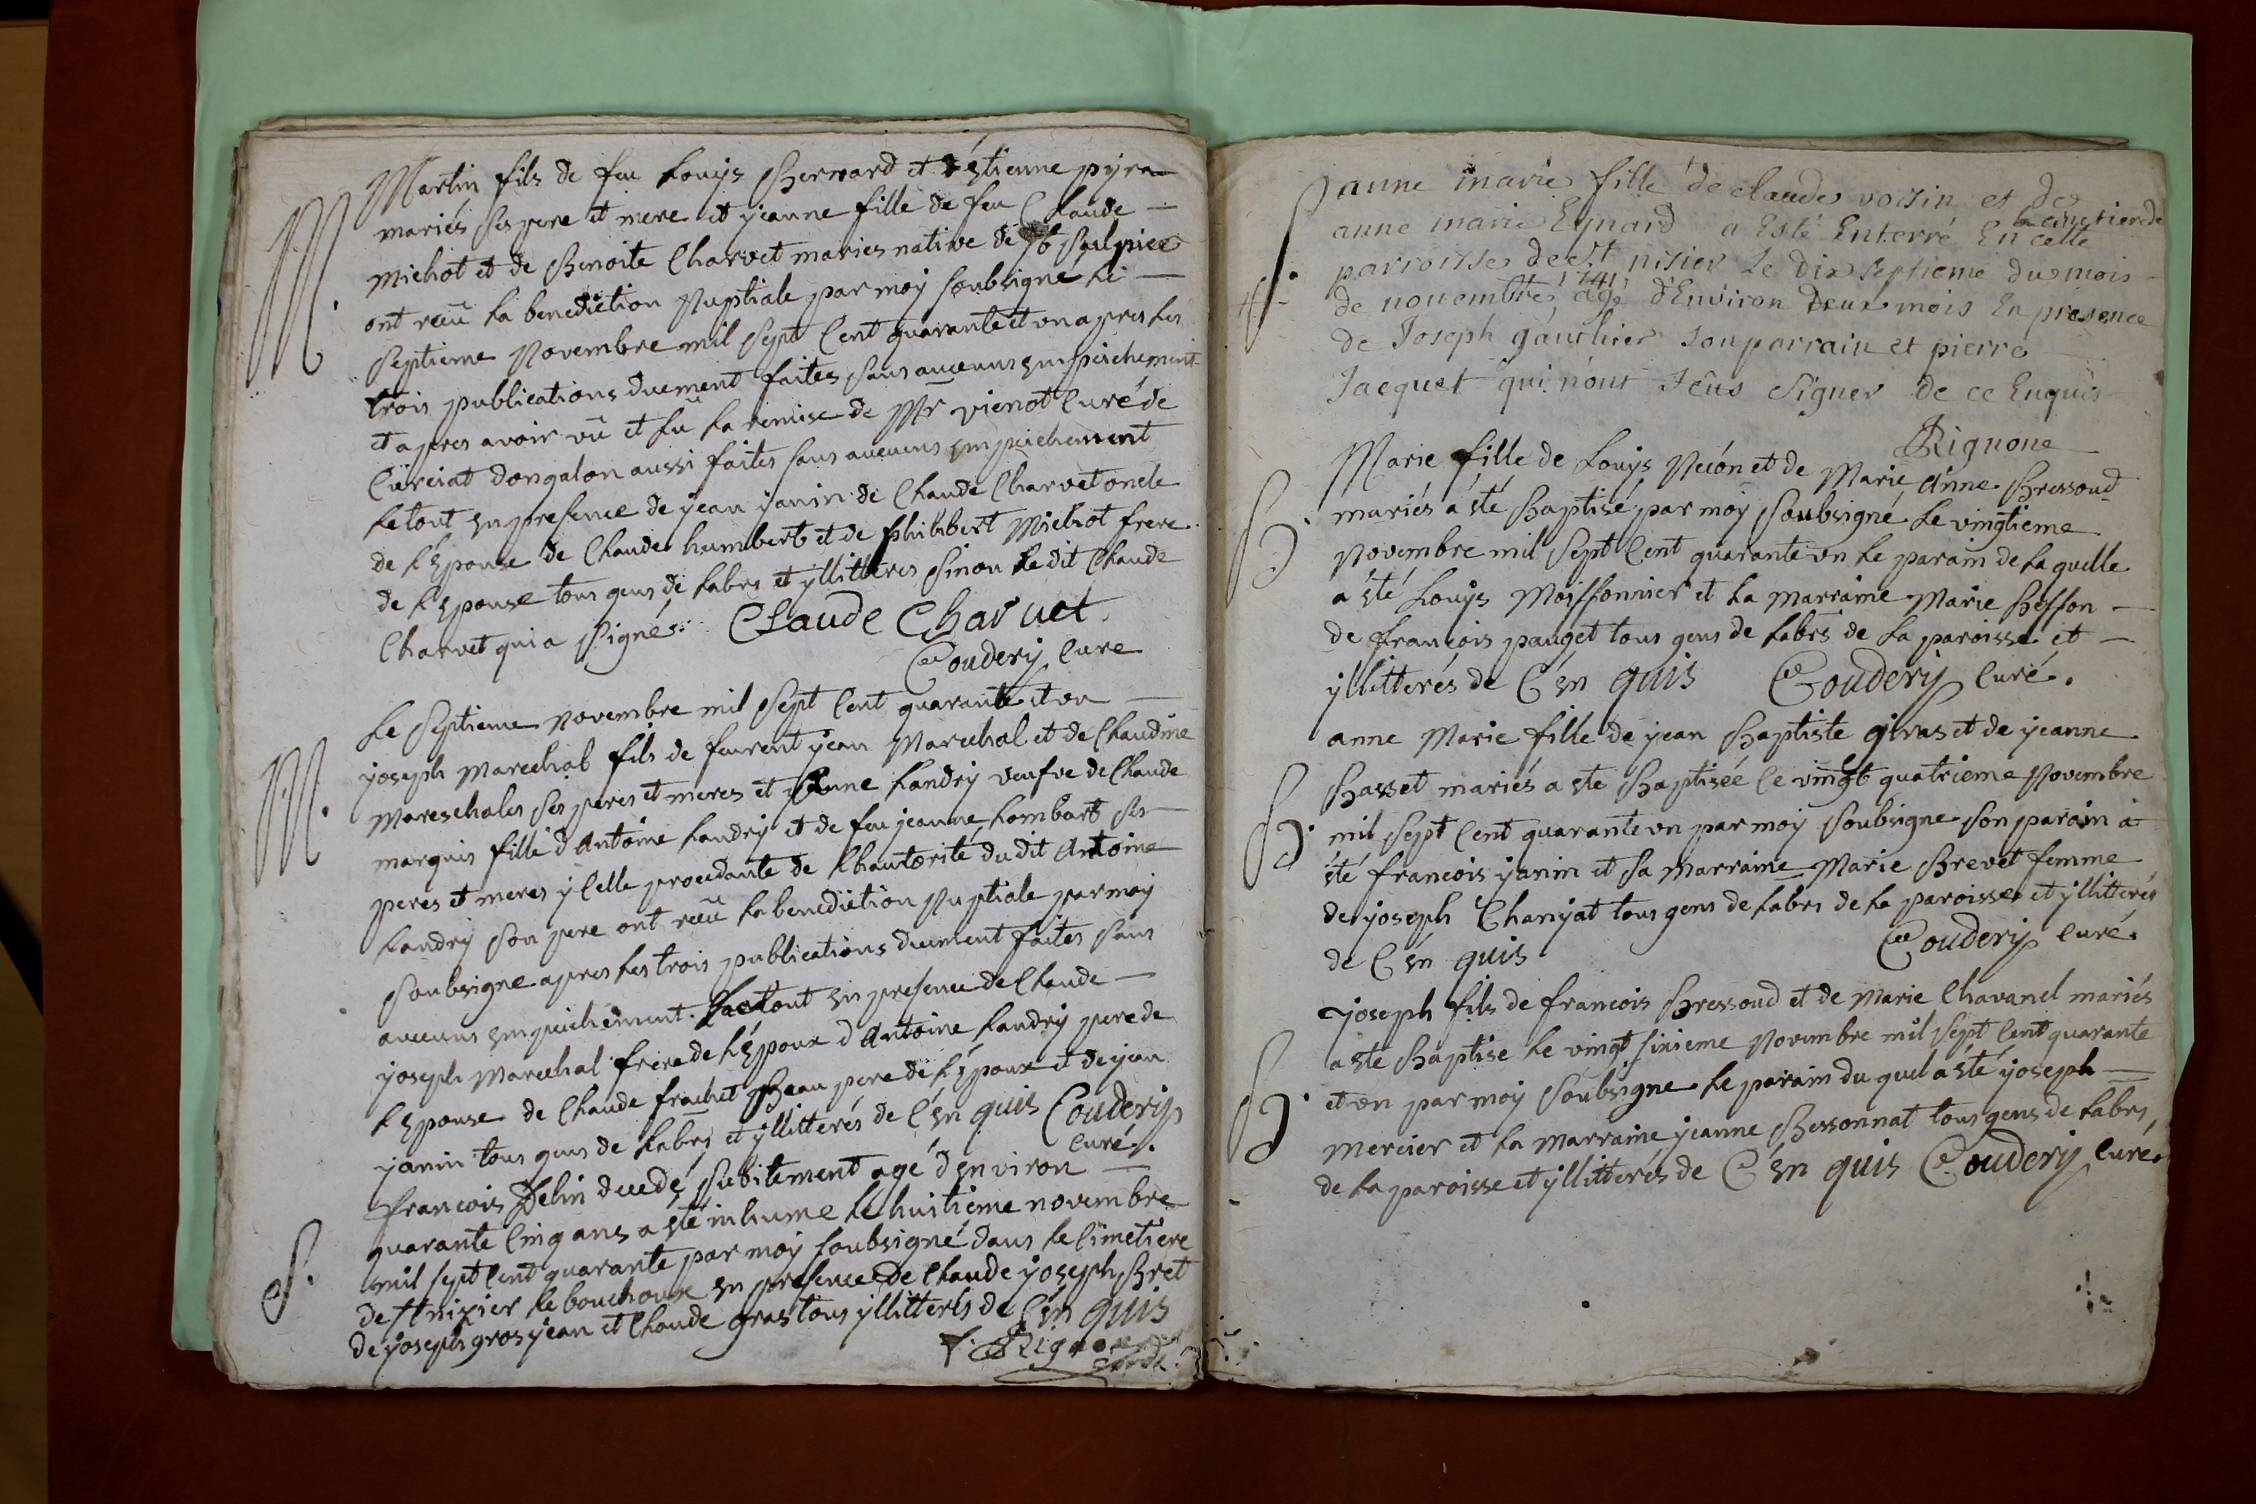 Martin fils de feu Louys Bernard et d'éstienne pyra
M. mariés ses pere et mere et yeanne fille de feu Claude
Michot et de Benoite Charvet maries native de St Sulpice
ont recû la benediction Nuptiale par moy soubsigne le
septieme Novembre mil sept Cent quarante et un apres les
trois publications duement faites sans aucuns empeichement
et apres avoir vû et lû la remise de Mr vienot Curé de
Curciat dongalon aussi faites sans aucuns empeichement
le tout en presence de yean yanin de Claude Charvet oncle
de l'Epouse de Claude humbert et de philibert Michot frere
de l'Epouse tous gens de labrs et yllitteres sinon le dit Claude
Charvet qui a signés. CLaude Charuet.
Coudery Cure
Le septieme Novembre mil sept Cent quarante et un
M. yoseph Marechal fils de feurent yean Marechal et de Claudine
Mareschales ses peres et meres et Anne Landry veufve de Claude
marquis fille d Antoine Landry et de feu yeanne Lombart ses
peres et meres ycelle procedante de lhautorité du dit Antoine
Landry son pere ont recû la benediction Nuptiale par moy
soubsigne apres les trois publications duement faites sans
aucuns empeichement. Le tout en presence de Claude
yoseph Marechal frere de l'Epoux d Antoine Landry pere de
l'Epouse de Claude frachet Beau pere de l'Epoux et de yean
yanin tous gens de labrs et yllitterés de C'en quis Coudery
Curé.
S. francois Pelin decedé subitement agé d'environ
quarante Cinq ans a sté inhume le huitieme novembre
mil sept Cent quarante par moy soubsigné dans le Cimetiere
de St nizier le bouchoux en presence de Claude yoseph Bret
de yoseph gros yean et Claude gras tous yllitterés de C'en quis
f. Rignone
Jeanne marie fille de claude voisin et de
anne marie Eynard a Esté Enterré En celle
le cimetier de
S. parroisse de St nisier Le dix septieme du mois
1741
de nouembre âgé d'Environ deux mois En présence
de Joseph gauthier son parrain et pierre
Jacquet qui nont sceûs signer de ce Enquis
Rignone
Marie fille de Louys Nuón et de Marie Anne Bressoud
B. mariés a sté Baptisé par moy soubsigné le vingtieme
Novembre mil sept Cent quarante un le parain de laquelle
a sté Louys Moissonnier et la marraine Marie Besson
de francois pauget tous gens de labrs de la paroisse et
yllitterés de C'en quis Coudery Curé.
anne Marie fille de yean Baptiste giras et de yeanne
Basset mariés a ste Baptisée le vingt quatrieme Novembre
B. mil sept Cent quarante un par moy soubsigne son parain a
sté francois yanin et sa marraine Marie Brevet femme
de yoseph Chanyat tous gens de labrs de la paroisse et yllitterés
de C'en quis Coudery Curé.
yoseph fils de francois Bressoud et de Marie Chavanel mariés
a ste Baptise le vingt sixieme Novembre mil sept Cent quarante
B. et un par moy soubsigne le parain du quel a sté yoseph
Mercier et la marraine yeanne Bessonnat tous gens de labrs
de la paroisse et yllitterés de C'en quis Coudery Curé.